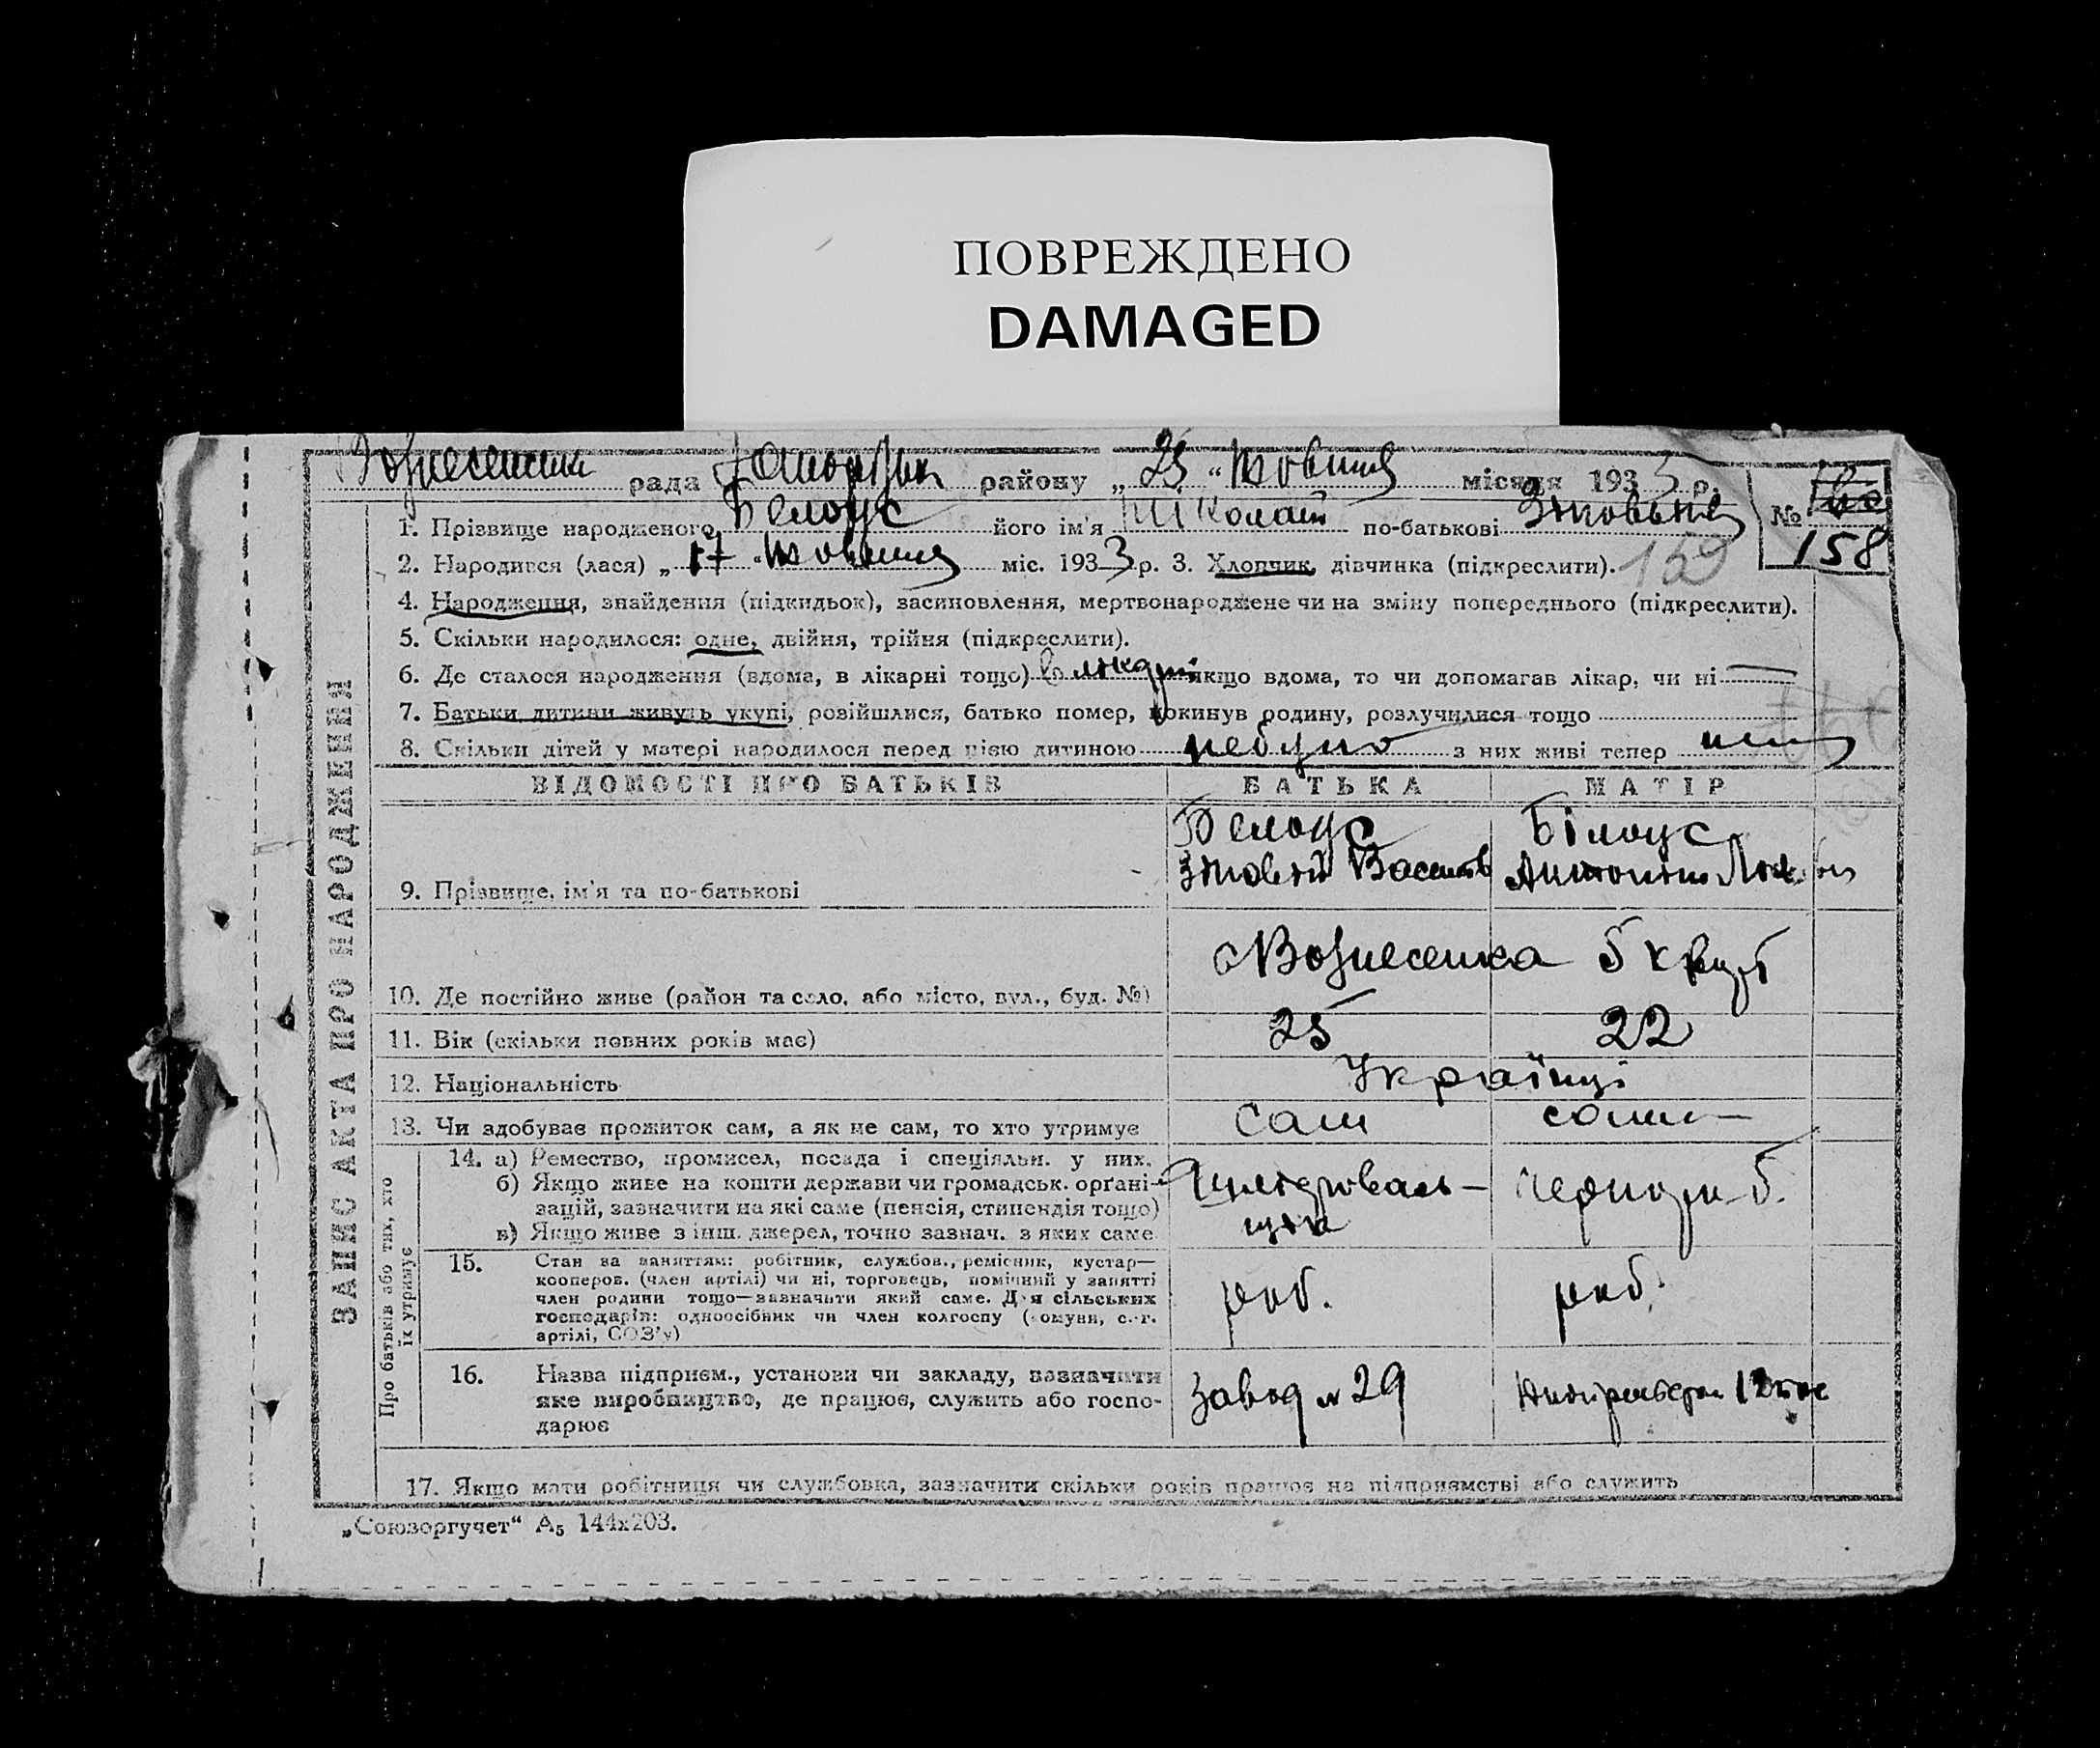 ПОВРЕЖДЕНО
DAMAGED
рада району „25“ Жовтня місяця 1933 р.
№ 158
1. Прізвище народженого Белоус його ім'я Ніколай по-батькові
2. Народився (лася) „17“ Жовтня міс. 1933 р. 3. Хлопчик, дівчинка (підкреслити). 159
4. Народження, знайдення (підкидьок), засиновлення, мертвонароджене чи на зміну попереднього (підкреслити).
5. Скільки народилося: одне, двійня, трійня (підкреслити).
6. Де сталося народження (вдома, в лікарні тощо) в лікарні якщо вдома, то чи допомагав лікар, чи ні —
7. Батьки дитини живуть укупі, розійшлися, батько помер, покинув родину, розлучилися тощо
8. Скільки дітей у матері народилося перед цією дитиною небуло з них живі тепер
ВІДОМОСТІ ПРО БАТЬКІВ БАТЬКА МАТІР
9. Прізвище, ім'я та по-батькові Белоус Білоус
10. Де постійно живе (район та село, або місто, вул., буд. №) Вознесенка 5
11. Вік (скільки повних років має) 25 22
12. Національність Українці
13. Чи здобуває прожиток сам, а як не сам, то хто утримує сам сама
14. а) Ремество, промисел, посада і спеціяльн. у них.
б) Якщо живе на кошти держави чи громадськ. органі-
зацій, зазначити на які саме (пенсія, стипендія тощо)
в) Якщо живе з інш. джерел, точно зазнач. з яких саме
15. Стан за заняттям: робітник, службов., ремісник, кустар—
кооперов. (член артілі) чи ні, торговець, помічний у занятті
член родини тощо—зазначити який саме. Для сільських
господарів: одноосібник чи член колгоспу (комуни, с.-г.
артілі, СОЗ'у)
роб. роб.
16. Назва підприєм., установи чи закладу, зазначити
яке виробництво, де працює, служить або госпо-
дарює
Завод № 29
17. Якщо мати робітниця чи службовка, зазначити скільки років працює на підприємстві або служить
ЗАПИС АКТА ПРО НАРОДЖЕННЯ
Про батьків або тих, хто
їх утримує
„Союзоргучет“ А₅ 144х203.